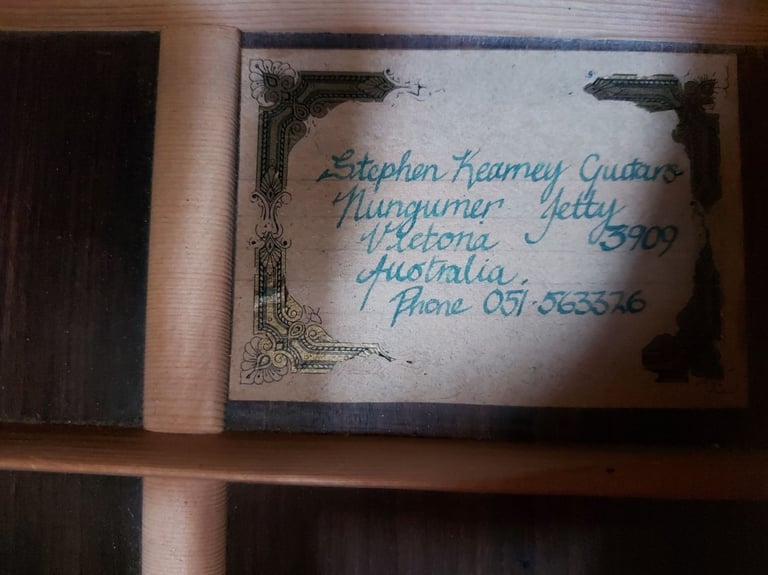 Stephen Kearney Guitars
Nungurner Jetty
Victoria 3909
Australia.
Phone 051·563326